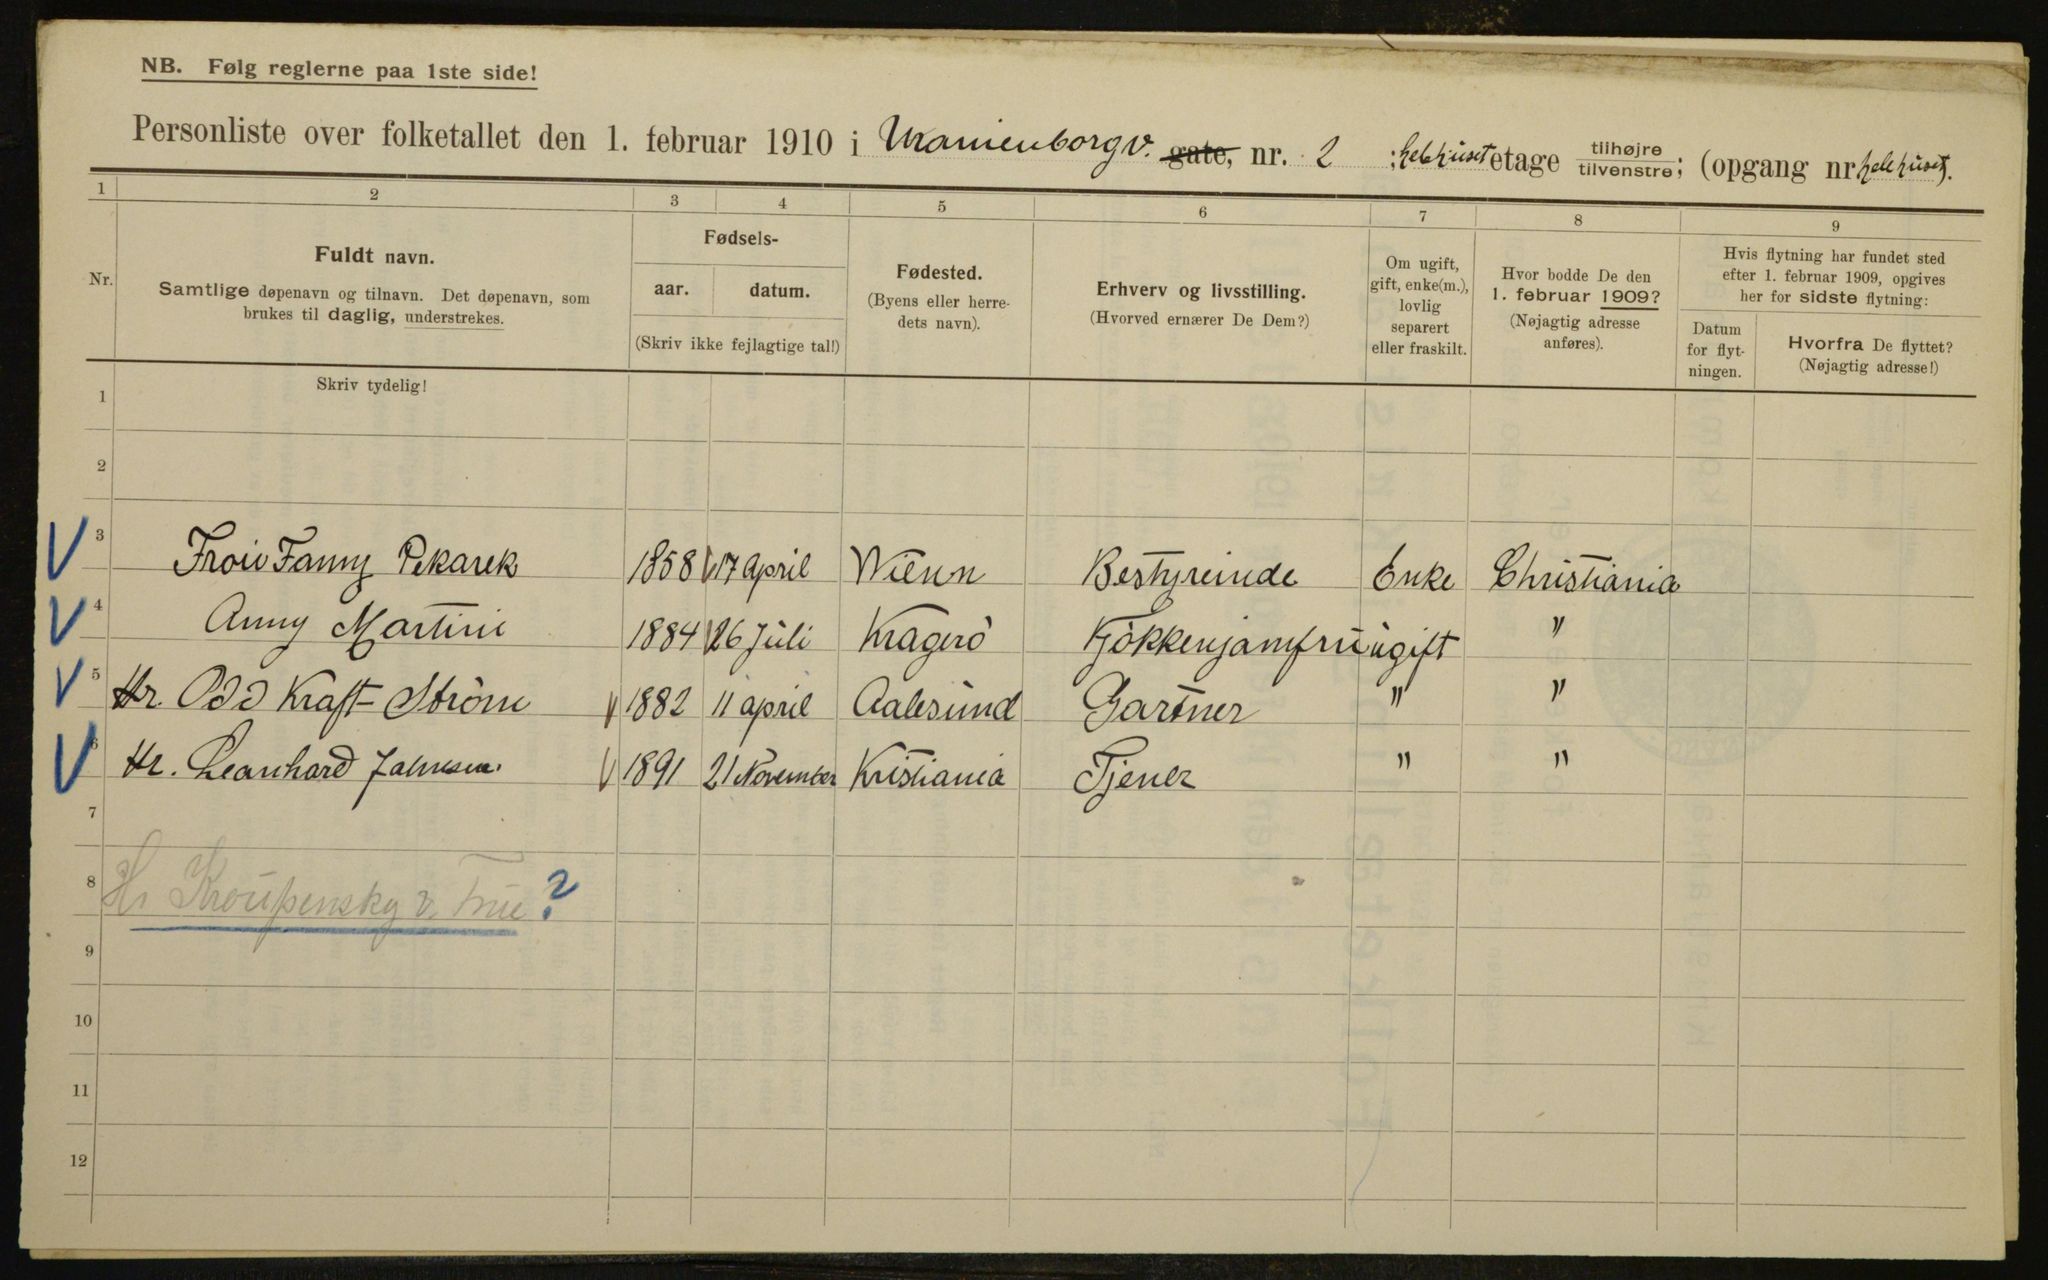 NB. Følg reglerne paa 1ste side!
Personliste over folketallet den 1. februar 1910 i Uranienborgv. gate, nr. 2 ; helehuset etage tilhøjre tilvenstre; (opgang nr. helehuset).
1 2 3 4 5 6 7 8 9
Nr.
Fuldt navn.
Samtlige døpenavn og tilnavn. Det døpenavn, som
brukes til daglig, understrekes.
Skriv tydelig!
Fødsels-
aar. datum.
(Skriv ikke fejlagtige tal!)
Fødested.
(Byens eller herre-
dets navn).
Erhverv og livsstilling.
(Hvorved ernærer De Dem?)
Om ugift,
gift, enke(m.),
lovlig
separert
eller fraskilt.
Hvor bodde De den
1. februar 1909?
(Nøjagtig adresse
anføres).
Hvis flytning har fundet sted
efter 1. februar 1909, opgives
her for sidste flytning:
Datum
for flyt-
ningen.
Hvorfra De flyttet?
(Nøjagtig adresse!)
1
2
3 Fanny Pekarek 1858 17 April Wienn Bestyreinde Enke Christiania
4 Anny Martini 1884 26 Juli Kragerö Kjökkenjomfru ugift "
5 Hr. Odd Kraft-Ström 1882 11 april Aalesund Gartner " "
6 Hr. Leonhard 1891 21 November Kristiania Tjener " "
7
8 Hr Kroupensky &amp; Frue ?
9
10
11
12